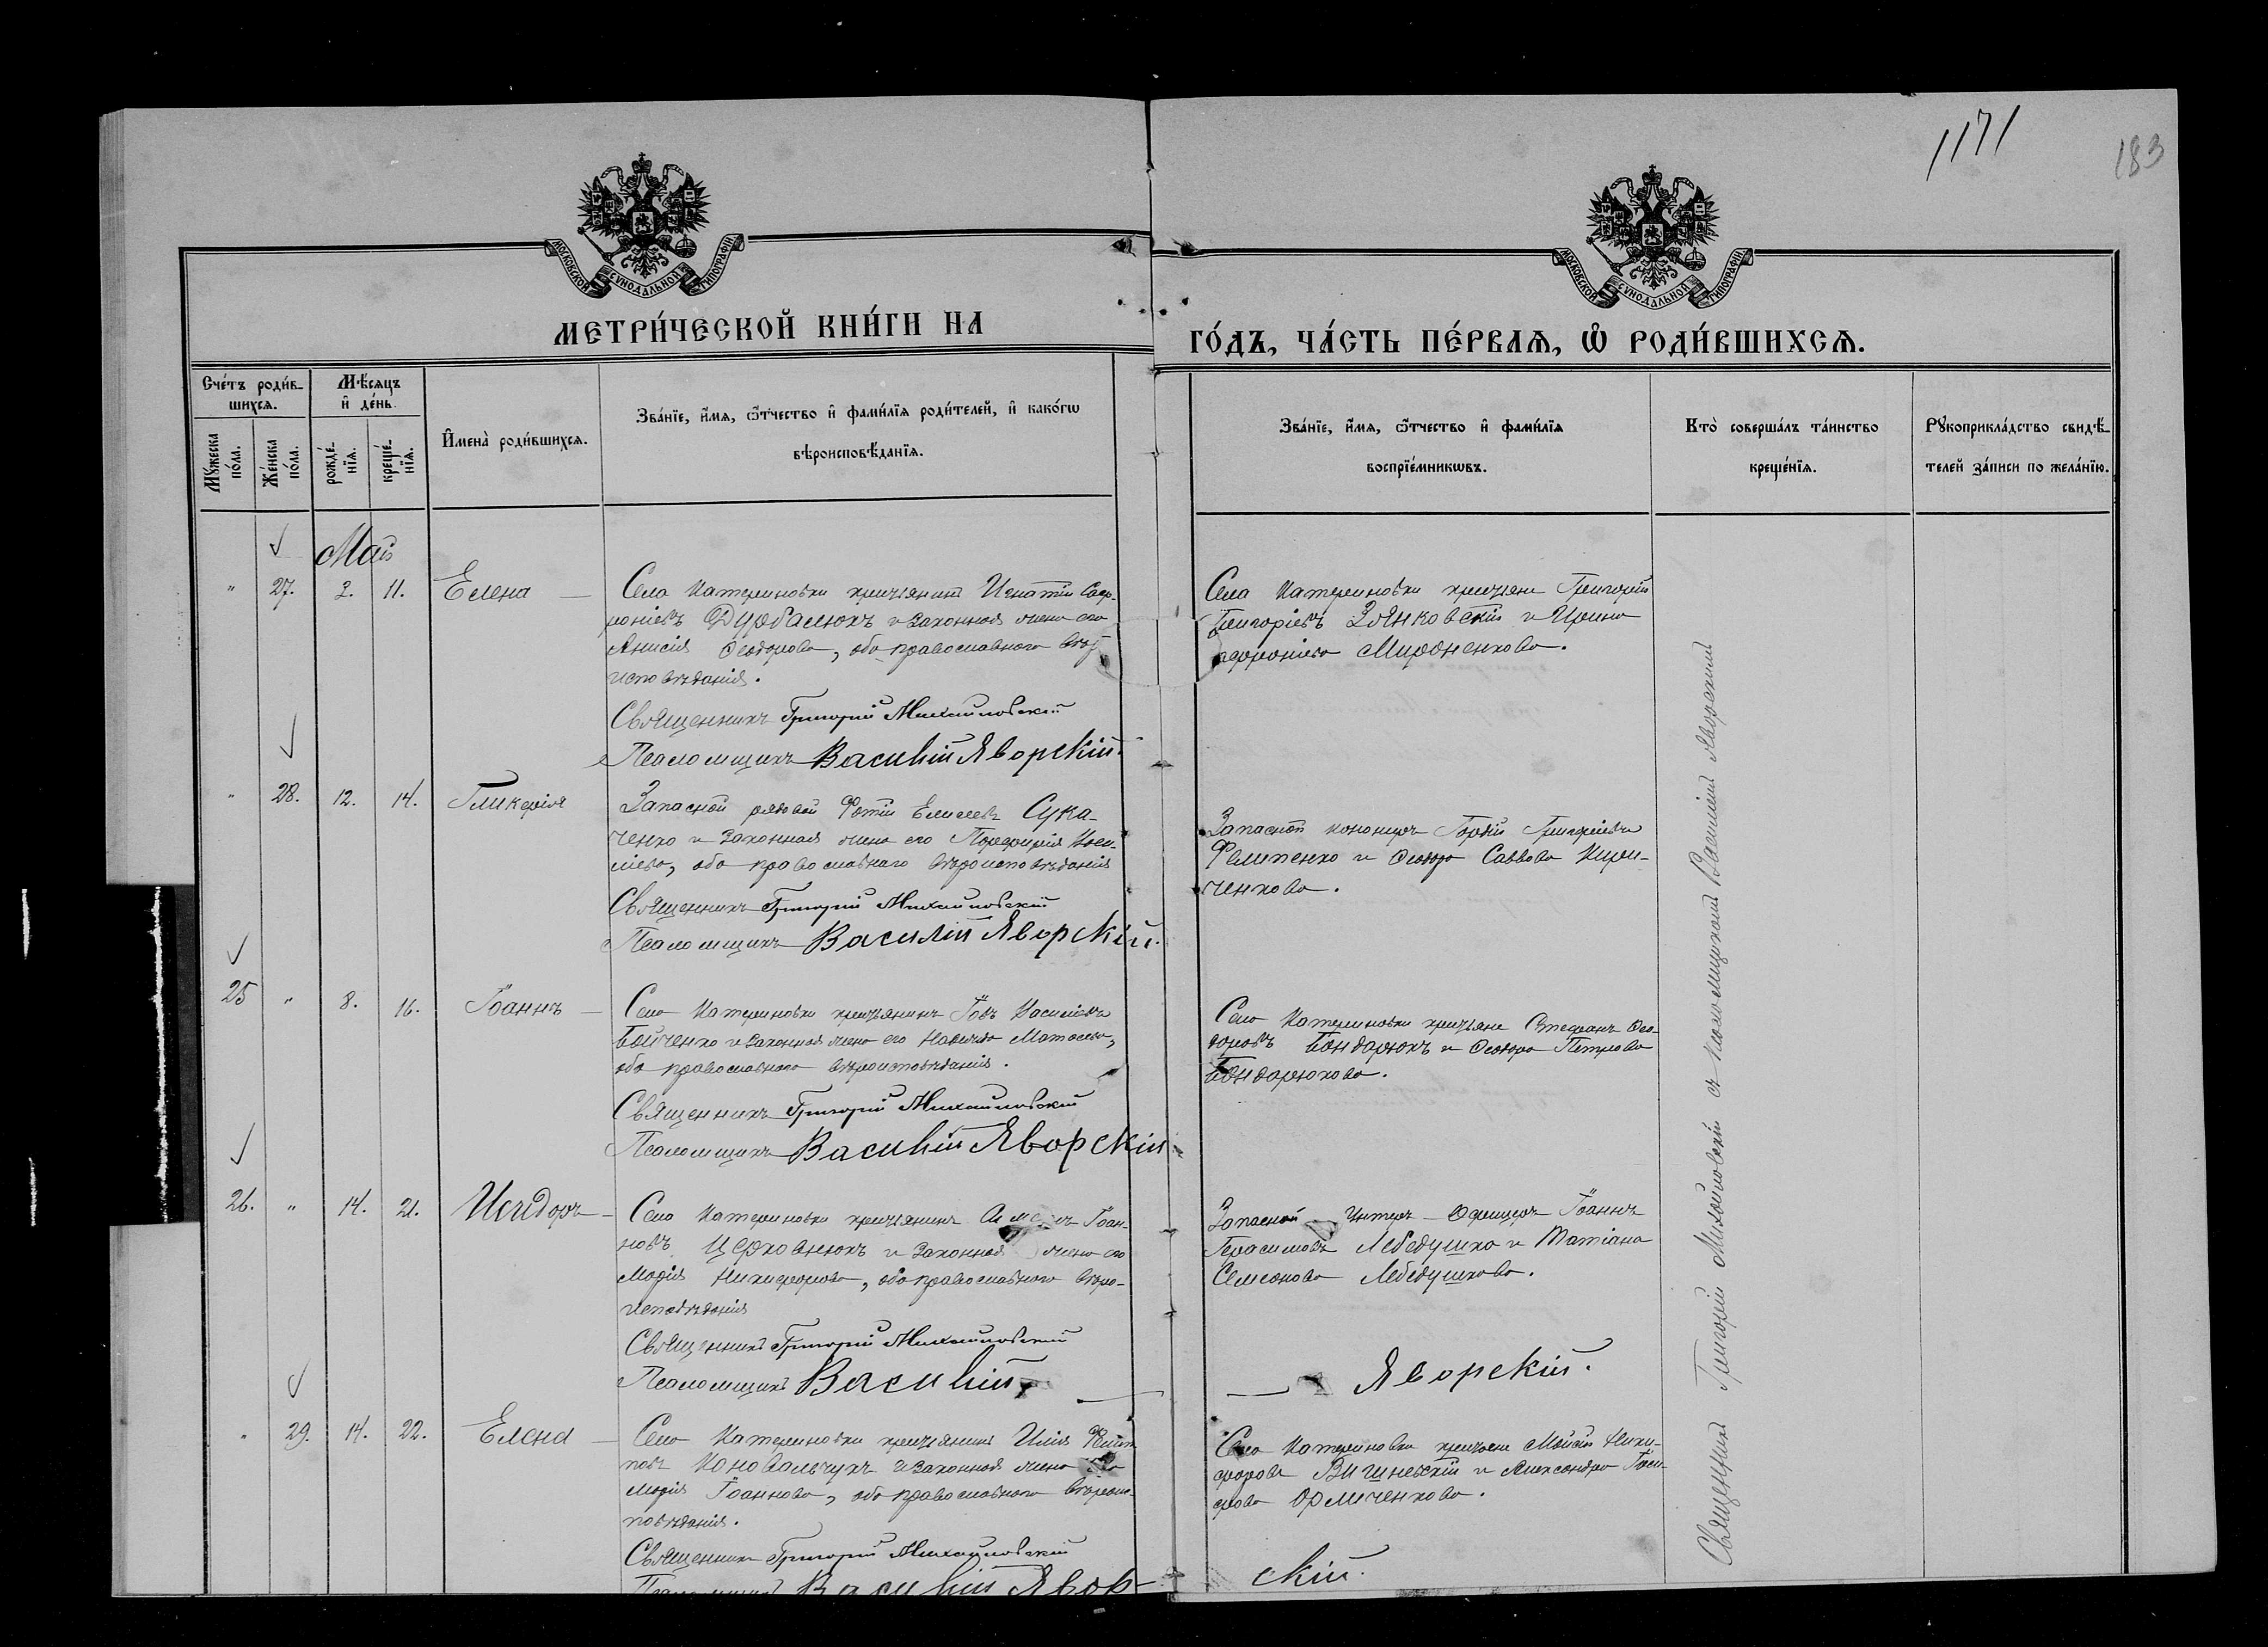 1171
183
МОСКОВСКОЙ СѴНОДАЛЬНОЙ ТИПОГРАФІИ
МОСКОВСКОЙ СѴНОДАЛЬНОЙ ТИПОГРАФІИ
МЕТРИ́ЧЕСКОЙ КНИ́ГИ НА
ГО́ДЪ, ЧА́СТЬ ПЕ́РВАѦ, Ѡ҆ РОДИ́ВШИХСѦ.
Сче́тъ роди́в-
шихсѧ.
Мꙋ́жеска
по́ла.
Же́нска
по́ла.
Мѣ́сѧцъ
и҆ де́нь.
рожде́-
нїѧ.
креще́-
нїѧ.
И҆мена̀ роди́вшихсѧ.
Зва́нїе, и҆́мѧ, ѻ҆́тчество и҆ фами́лїѧ роди́телей, и҆ како́гѡ
вѣроисповѣ́данїѧ.
Зва́нїе, и҆́мѧ, ѻ҆́тчество и҆ фами́лїѧ
воспрїе́мникѡвъ.
Кто̀ соверша́лъ та́инство
креще́нїѧ.
Рꙋкоприкла́дство свидѣ́-
телей за́писи по жела́нїю.
Май
" 27. 2. 11. Елена —
Села Катериновки крестьянинъ Игнатій Соф-
роніевъ Дурбалюкъ и законная жена его
Анисія Ѳеодорова, оба православнаго вѣро
исповѣданія.
Священникъ Григорій Михайловскій
Псаломщикъ Василій Яворскій.
Села Катериновки крестьяне Григорій
Григоріевъ Зянковскій и Ирина
Мироненкова.
" 28. 12. 14. Гликерія
Запасной рядовой Фотій Елисеевъ Сука-
ченко и законная жена его Порфирія Васи-
ліева, оба православнаго вѣроисповѣданія
Священникъ Григорій Михайловскій
Псаломщикъ Василій Яворскій.
Запасной канониръ Гордій Григоріевъ
Филипенко и Ѳеодора Саввова Кири-
ченкова.
25 " 8. 16. Іоаннъ —
Села Катериновки крестьянинъ Іовъ Василіевъ
Бойченко и законная жена его Наталія Матѳеева,
оба православнаго вѣроисповѣданія.
Священникъ Григорій Михайловскій
Псаломщикъ Василій Яворскій
Села Катериновки крестьяне Стефанъ Ѳео-
доровъ Бондарюкъ и Ѳеодора Петрова
Бондарюкова.
26. " 14. 21. Исидоръ —
Села Катериновки крестьянинъ Іоан-
новъ Церковнюкъ и законная жена его
Марія Никифорова, оба православнаго вѣро-
исповѣданія
Священникъ Григорій Михайловскій
Псаломщикъ Василій —
Запасной Унтеръ-Офицеръ Іоаннъ
Герасимовъ Лебедушка и Татіана
Семенова Лебедушкова.
— Яворскій.
" 29. 14. 22. Елена —
Села Катериновки крестьянинъ Илія Филип
повъ Коновальчукъ и законная жена его
Марія Іоаннова, оба православнаго вѣроис-
повѣданія.
Священникъ Григорій Михайловскій
Псаломщикъ Василій Явор-
Села Катериновки крестьяне Моисей Ники-
форовъ Вишневскій и Александра Іоси-
фова
скій.
Священникъ Григорій Михайловскій съ псаломщикомъ Василіемъ Яворскимъ